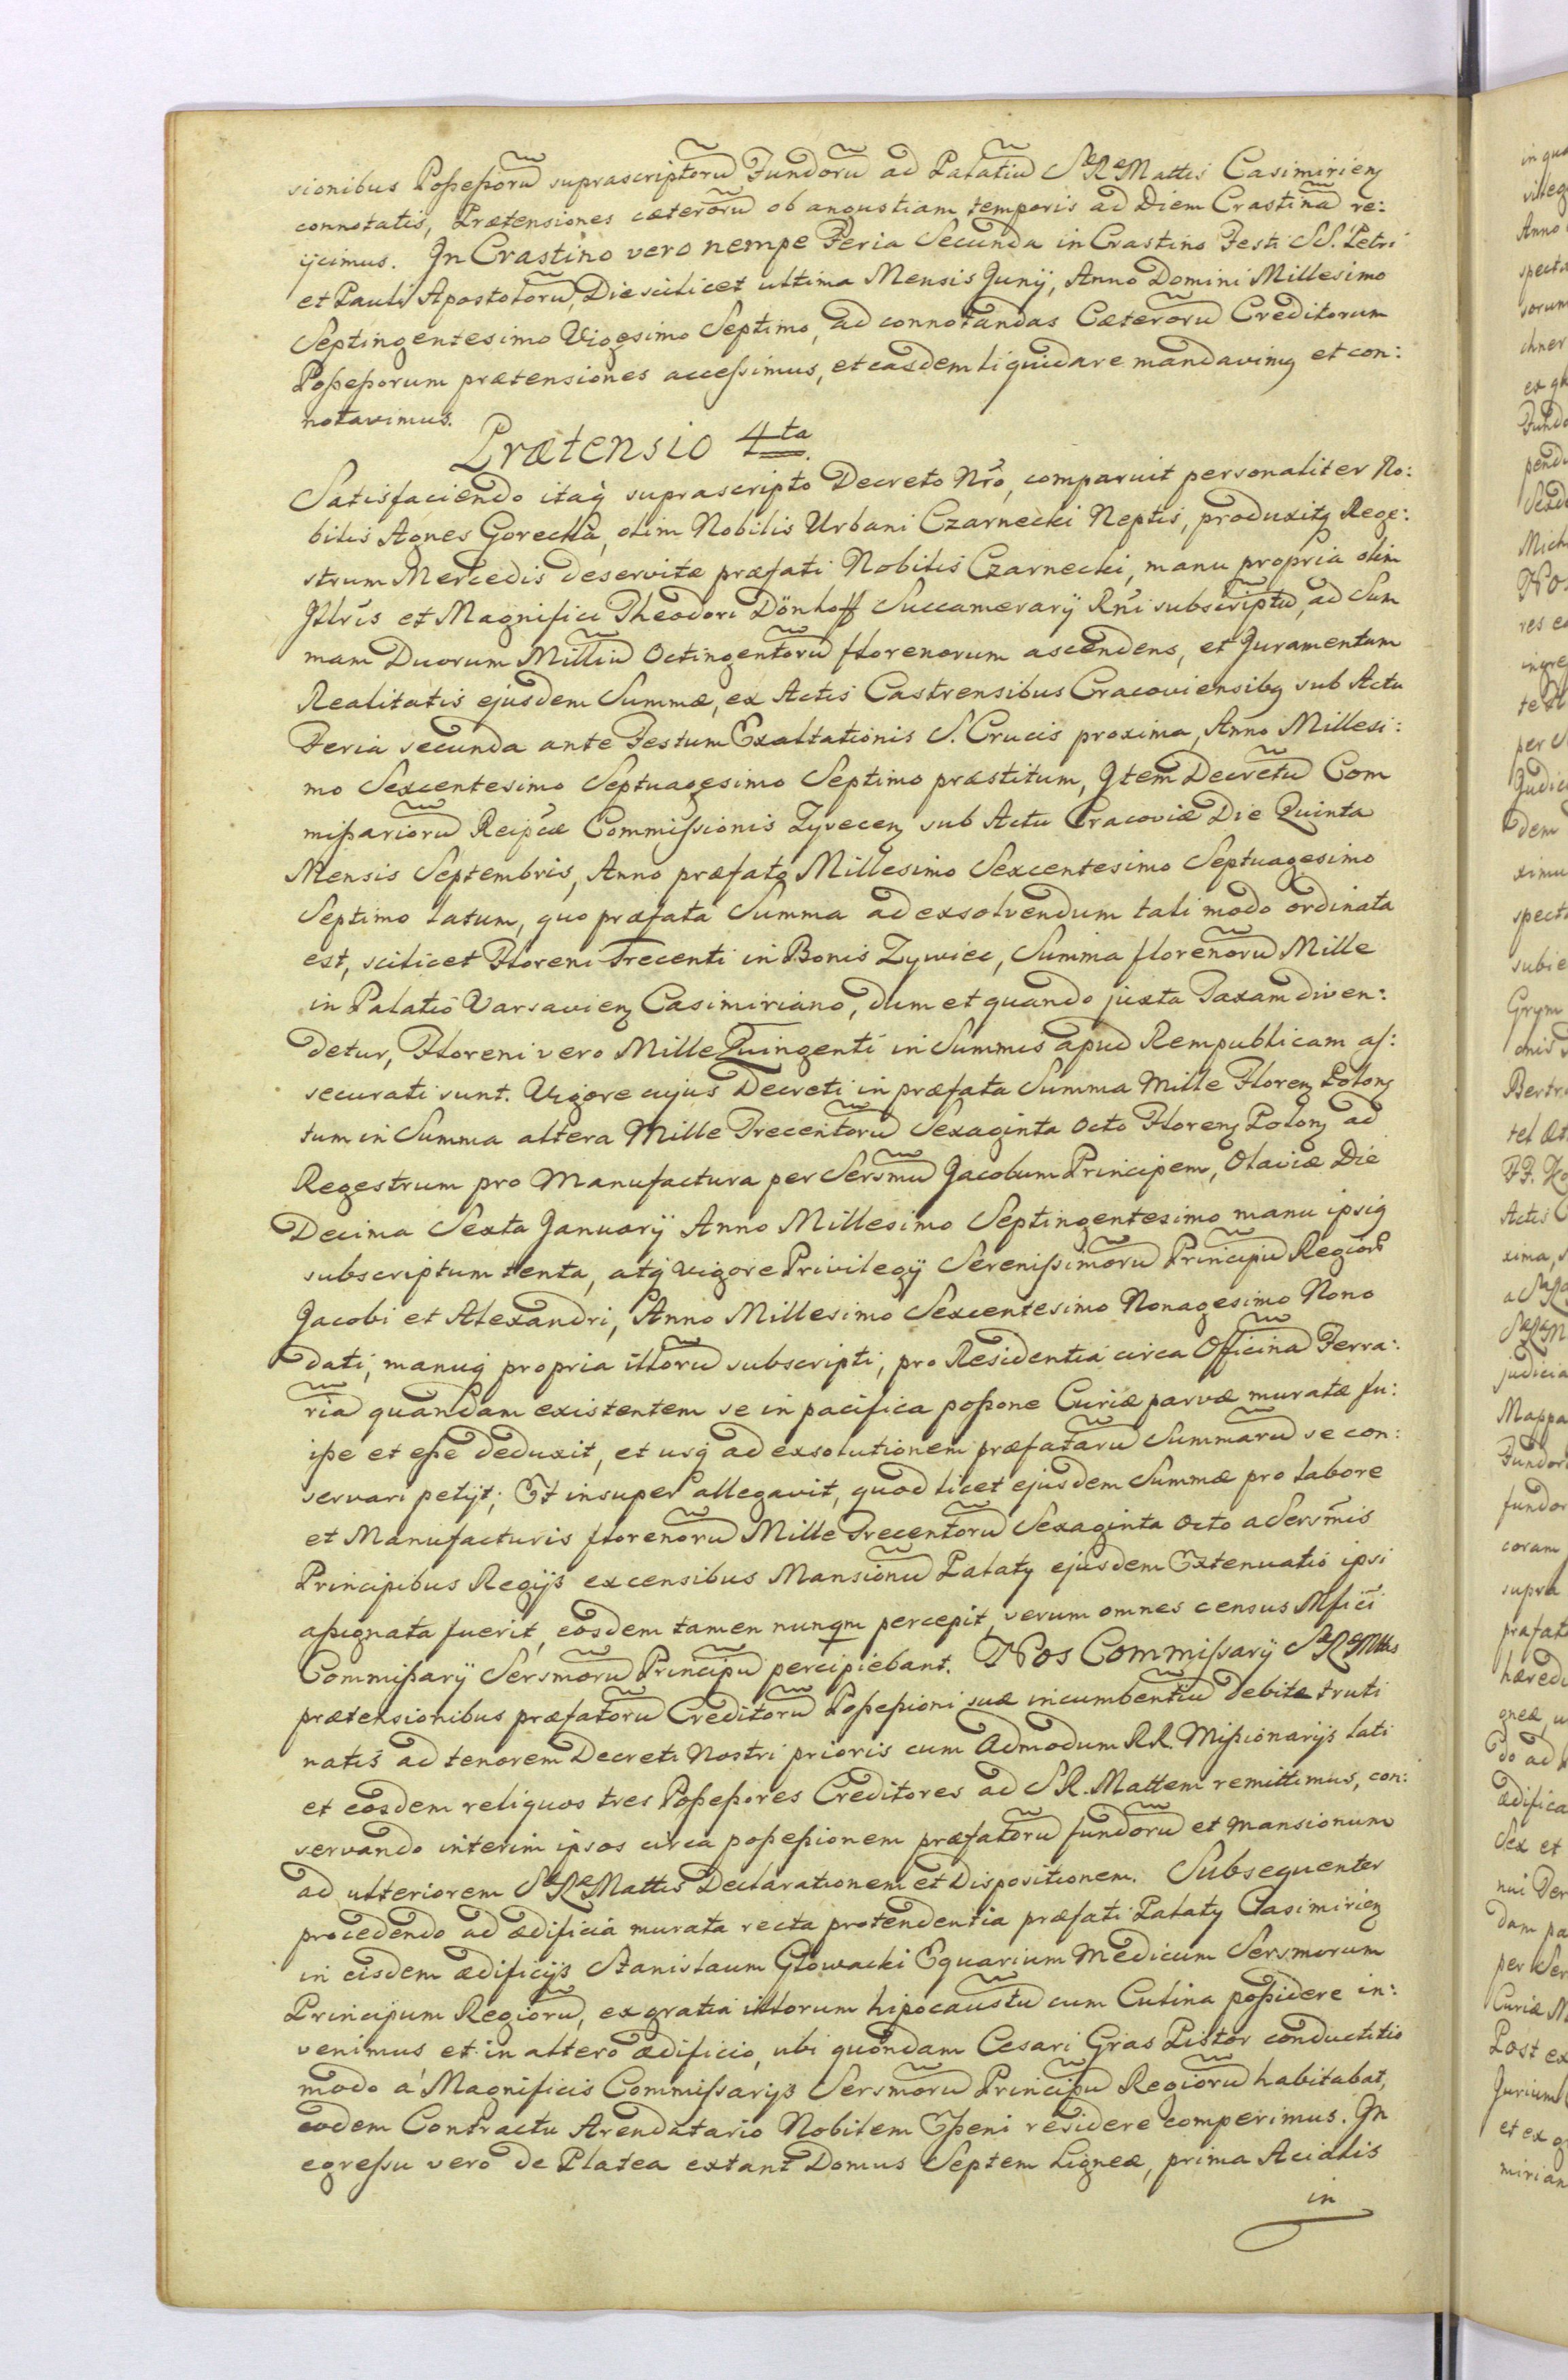 sionibus Poßeßorũ suprascriptorũ Fundorũ ad Palatiũ Sæ Ræ Mattis Casimirien
connotatis, Prætensiones cæterorũ ob angustiam temporis ad Diem Crastinã re:
ijcimus. In Crastino vero nempe Feria Secunda in Crastino Festi SS. Petri
et Pauli Apostolorũ, Die scilicet ultima Mensis Junij, Anno Domini Millesimo
Septingentesimo Vigesimo Septimo, ad connotandas Cæterorũ Creditorum
Poßeßorum prætensiones acceßimus, et easdem liquidare mandavimq et con:
notavimus.
Prætensio 4ta.
Satisfaciendo itaq̀ suprascripto Decreto Nr̃o, comparuit personaliter No:
bilis Agnes Gorecka, olim Nobilis Urbani Czarnecki Neptis, produxitq Rege:
strum Mercedis deservitæ præfati Nobilis Czarnecki, manu propria olim
Illr̃is et Magnifici Theodori Dönhoff Succamerarij Rñi subscriptũ, ad Sum
mam Duorum Milliũ Octingentorũ florenorum ascendens, et Juramentum
Realitatis ejusdem Summæ, ex Actis Castrensibus Cracoviensibq sub Actu
Feria secunda ante Festum Exaltationis S. Crucis proxima, Anno Millesi:
mo Sexcentesimo Septuagesimo Septimo præstitum, Item Decretũ Com
mißariorũ Reipc̃æ Commißionis Zyvecen sub Actu Cracoviæ Die Quinta
Mensis Septembris, Anno præfato Millesimo Sexcentesimo Septuagesimo
Septimo latum, quo præfata Summa ad exsolvendum tali modo ordinata
est, scilicet Floreni Trecenti in Bonis Zywiec, Summa florenorũ Mille
in Palatio Varsavien Casimiriano, dum et quando juxta Taxam diven:
detur, Floreni vero Mille Quingenti in Summis apud Rempublicam aß:
securati sunt. Vigore cujus Decreti in præfata Summa Mille Floren Polon
tum in Summa altera Mille Trecentorũ Sexaginta Octo Floren Polon ad
Regestrum pro Manufactura per Sersmũ Jacobum Principem, Olaviæ Die
Decima Sexta January Anno Millesimo Septingentesimo manu ipsiq
subscriptum tenta, atq̀ vigore Privilegij Serenißimorũ Principũ Regiorũ
Jacobi et Alexandri, Anno Millesimo Sexcentesimo Nonagesimo Nono
dati, manuq̀ propria illorũ subscripti, pro Residentia circa Officinã Ferra:
riã quandam existentem se in pacifica poßone Curiæ parvæ muratæ fu:
iße et eße deduxit, et usq̀ ad exsolutionem præfatarũ Summarũ se con:
servari petijt; Et insuper allegavit, quod licet ejusdem Summæ pro labore
et Manufacturis florenorũ Mille Trecentorũ Sexaginta Octo a Sersm̃is
Principibus Regijs ex censibus Mansionũ Palaty ejusdem Extenuatio ipsi
aßignata fuerit, eosdem tamen nunqm percepit, verum omnes census Mfici
Commißarij Sersmorũ Principũ percipiebant. Nos Commißarij Sæ Ræ Mttis
prætensionibus præfatorũ Creditorũ Poßeßioni suæ incumbentiũ debite truti
natis ad tenorem Decreti Nostri prioris cum Admodum RR. Mißionarijs lati
et eosdem reliquos tres Poßeßores Creditores ad S R. Mattem remittimus, con:
servando interim ipsos circa poßeßionem præfatorũ fundorũ et mansionum
ad ulteriorem Sæ Ræ Mattis Declarationem et Dispositionem. Subsequenter
procedendo ad ædificia murata recta protendentia præfati Palaty Casimirien
in eisdem ædificijs Stanislaum Głowacki Equarium Medicum Sersmorum
Principum Regiorũ, ex gratia illorum hipocaustũ cum Culina poßidere in:
venimus et in altero ædificio, ubi quondam Cesari Gras Pistor conductitio
modo á Magnificis Commißarijs Sersmorũ Principũ Regiorũ habitabat,
eodem Contractu Arendatario Nobilem Eßeni residere comperimus. In
egreßu vero de Platea extant Domus Septem Ligneæ, prima Acialis
in